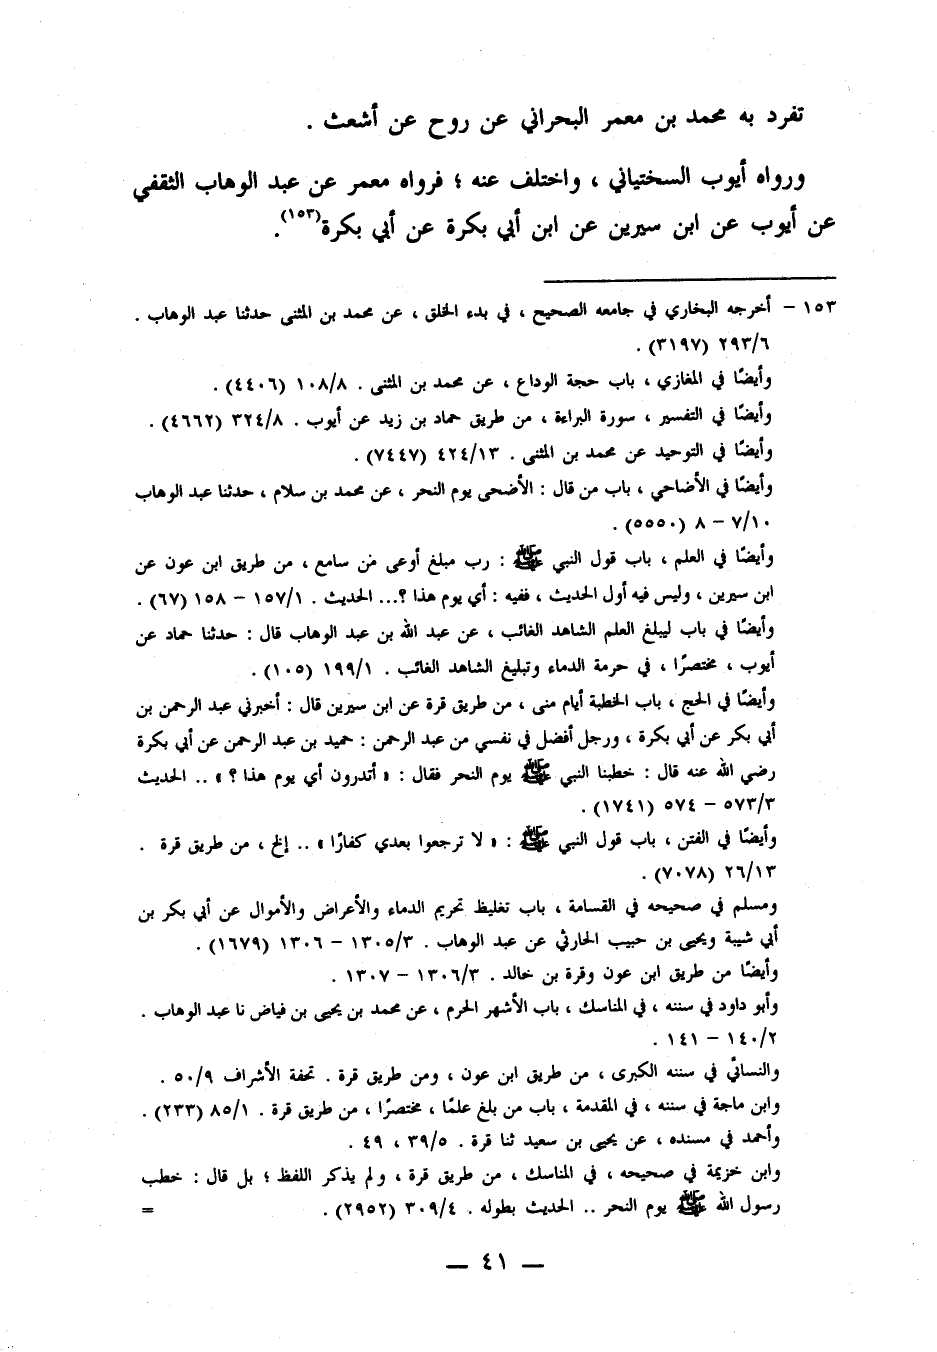 تفرد به محمد بن معمر البحراني عن روح عن أشعث .
ورواه أيوب السختياني ، واختلف عنه ؛ فرواه معمر عن عبد الوهاب الثقفي
عن أيوب عن ابن سيرين عن ابن أبي بكرة عن أبي بكرة(١٥٣).
١٥٣ – أخرجه البخاري في جامعه الصحيح ، في بدء الخلق ، عن محمد بن المثنى حدثنا عبد الوهاب .
٢٩٣/٦ (٣١٩٧) .
وأيضًا في المغازي ، باب حجة الوداع ، عن محمد بن المثنى . ١٠٨/٨ (٤٤٠٦) .
وأيضًا في التفسير ، سورة البراءة ، من طريق حماد بن زيد عن أيوب . ٣٢٤/٨ (٤٦٦٢) .
وأيضًا في التوحيد عن محمد بن المثنى . ٤٢٤/١٣ (٧٤٤٧) .
وأيضًا في الأضاحي ، باب من قال : الأضحى يوم النحر ، عن محمد بن سلام ، حدثنا عبد الوهاب
٧/١٠ – ٨ (٥٥٥٠) .
وأيضًا في العلم ، باب قول النبي ﷺ : رب مبلغ أوعى من سامع ، من طريق ابن عون عن
ابن سيرين ، وليس فيه أول الحديث ، ففيه : أي يوم هذا ؟... الحديث . ١٥٧/١ – ١٥٨ (٦٧) .
وأيضًا في باب ليبلغ العلم الشاهد الغائب ، عن عبد الله بن عبد الوهاب قال : حدثنا حماد عن
أيوب ، مختصرًا ، في حرمة الدماء وتبليغ الشاهد الغائب . ١٩٩/١ (١٠٥) .
وأيضًا في الحج ، باب الخطبة أيام منى ، من طريق قرة عن ابن سيرين قال : أخبرني عبد الرحمن بن
أبي بكر عن أبي بكرة ، ورجل أفضل في نفسي من عبد الرحمن : حميد بن عبد الرحمن عن أبي بكرة
رضي الله عنه قال : خطبنا النبي ﷺ يوم النحر فقال : « أتدرون أي يوم هذا ؟ » .. الحديث
٥٧٣/٣ – ٥٧٤ (١٧٤١) .
وأيضًا في الفتن ، باب قول النبي ﷺ : « لا ترجعوا بعدي كفارًا » .. إلخ ، من طريق قرة .
٢٦/١٣ (٧٠٧٨) .
ومسلم في صحيحه في القسامة ، باب تغليظ تحريم الدماء والأعراض والأموال عن أبي بكر بن
أبي شيبة ويحيى بن حبيب الحارثي عن عبد الوهاب . ١٣٠٥/٣ – ١٣٠٦ (١٦٧٩) .
وأيضًا من طريق ابن عون وقرة بن خالد . ١٣٠٦/٣ – ١٣٠٧ .
وأبو داود في سننه ، في المناسك ، باب الأشهر الحرم ، عن محمد بن يحيى بن فياض نا عبد الوهاب .
١٤٠/٢ – ١٤١ .
والنسائي في سننه الكبرى ، من طريق ابن عون ، ومن طريق قرة . تحفة الأشراف ٥٠/٩ .
وابن ماجة في سننه ، في المقدمة ، باب من بلغ علمًا ، مختصرًا ، من طريق قرة . ٨٥/١ (٢٣٣) .
وأحمد في مسنده ، عن يحيى بن سعيد ثنا قرة . ٣٩/٥ ، ٤٩ .
وابن خزيمة في صحيحه ، في المناسك ، من طريق قرة ، ولم يذكر اللفظ ؛ بل قال : خطب
رسول الله ﷺ يوم النحر .. الحديث بطوله . ٣٠٩/٤ (٢٩٥٢) . =
— ٤١ —